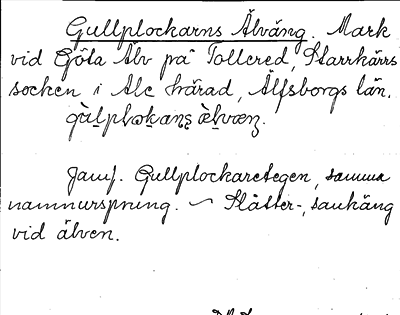 Gullplockarns Älväng. Mark
vid Göta Älv på Tollered, Starrkärrs
socken i Ale härad, Älfsborgs län.
Jamf. Gullplockaretegen, samma
namnursprung. ~ Slåtter-, sankäng
vid älven.